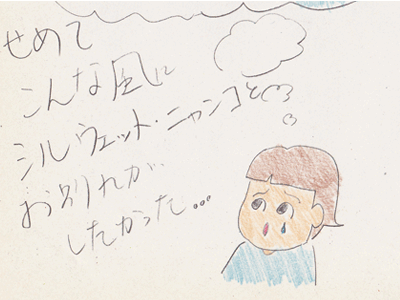 せめて
こんな風に
シルウェット・ニャンコと
お別れが
したかった…